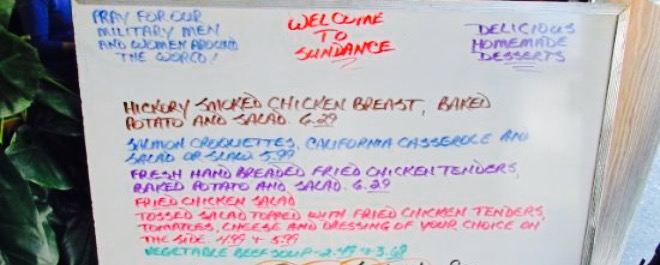 PRAY FOR OUR
MILITARY MEN
AND WOMEN AROUND
THE WORLD!
WELCOME
TO
SUNDANCE
DELICIOUS
HOMEMADE
DESSERTS
HICKORY SMOKED CHICKEN BREAST, BAKED
POTATO AND SALAD. 6.29
SALMON CROQUETTES, CALIFORNIA CASSEROLE AND
SALAD OR SLAW 5.99
FRESH HAND BREADED FRIED CHICKEN TENDERS,
BAKED POTATO AND SALAD. 6.29
FRIED CHICKEN SALAD
TOSSED SALAD TOPPED WITH FRIED CHICKEN TENDERS,
TOMATOES, CHEESE AND DRESSING OF YOUR CHOICE ON
THE SIDE. 4.99 & 5.99
VEGETABLE BEEF SOUP - 2.49 & 3.68